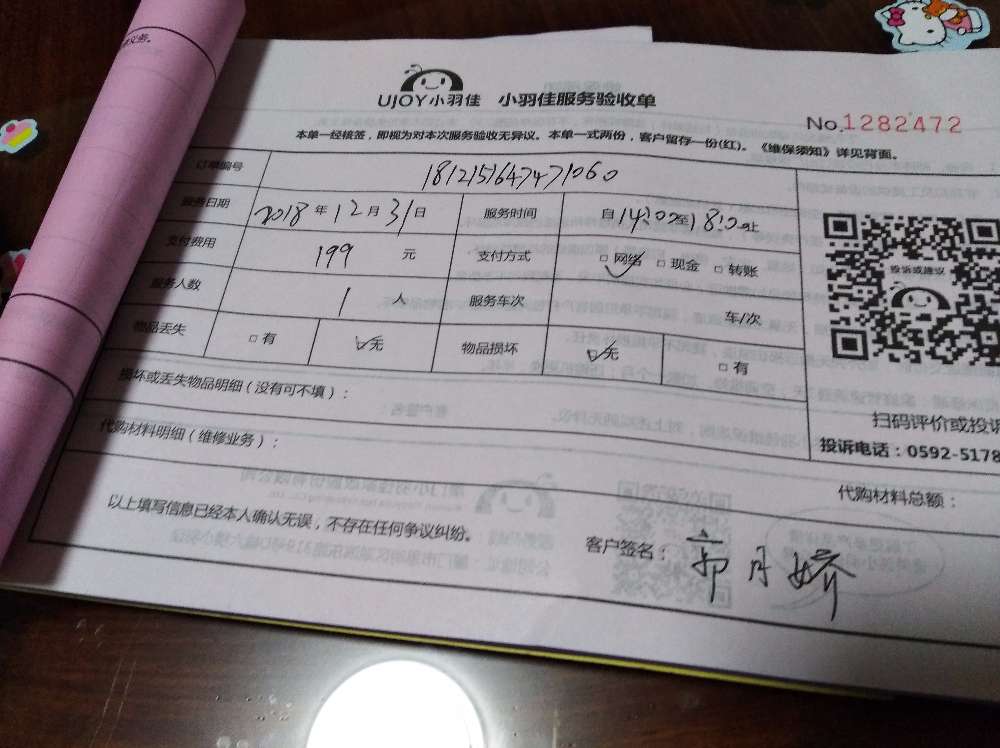 义务。
UJOY小羽佳 小羽佳服务验收单
No.1282472
本单一经核签，即视为对本次服务验收无异议。本单一式两份，客户留存一份(红)。《维保须知》详见背面。
订单编号 1812151647471060
服务日期 2018 年 12 月 31 日 服务时间 自 14:00 至 18:00 止
支付费用 199 元 支付方式 □网络 □现金 □转账
服务人数 1 人 服务车次 车/次
物品丢失 □有 □无 物品损坏 □无 □有
投诉或建议
损坏或丢失物品明细（没有可不填）：
扫码评价或投诉
代购材料明细（维修业务）：
投诉电话：0592-5178
代购材料总额：
以上填写信息已经本人确认无误，不存在任何争议纠纷。
客户签名：郭月娇